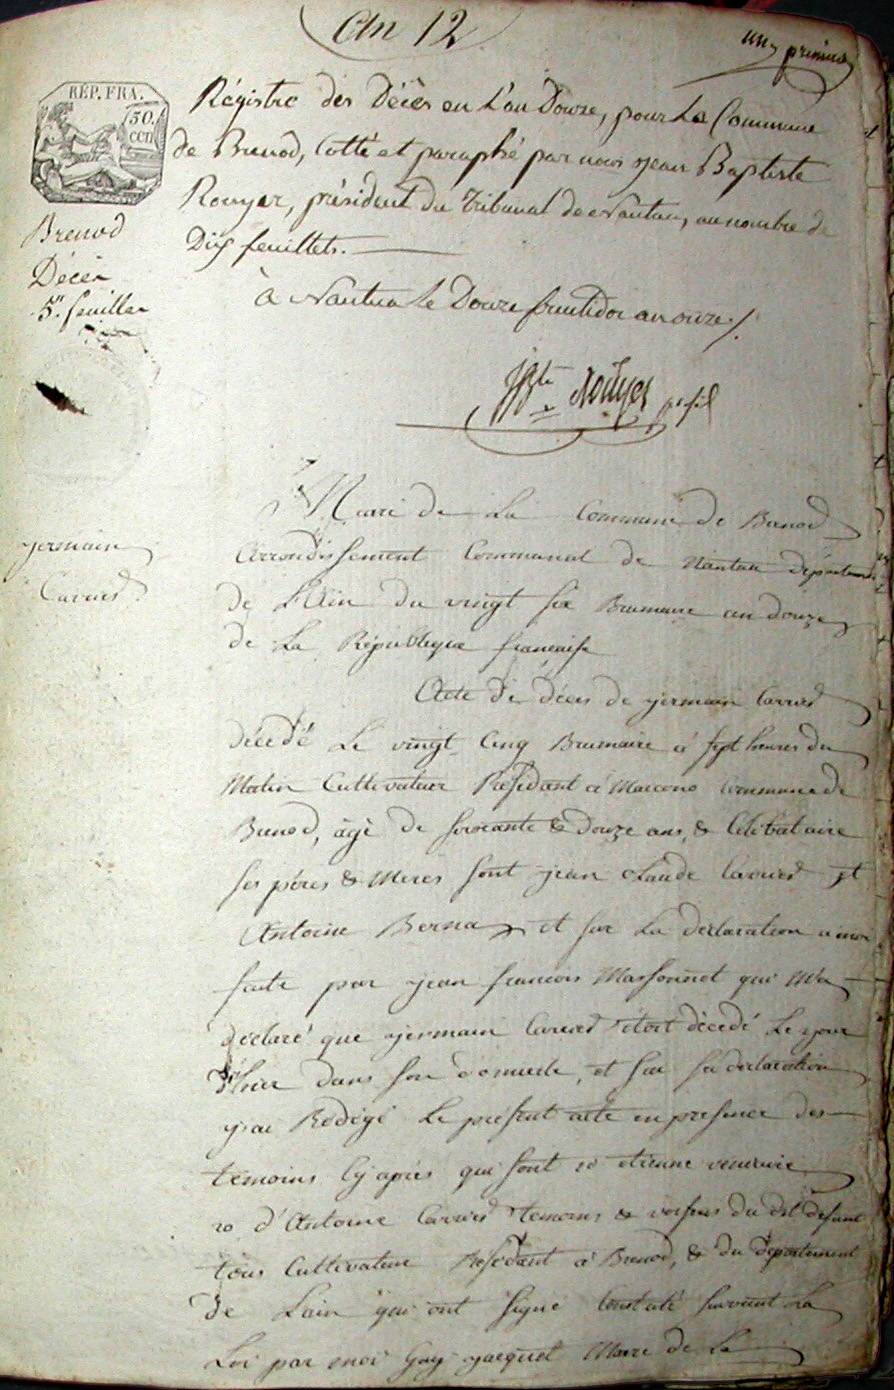 An 12
un, primus
RÉP. FRA.
50.
CEN
Régistre des Décès en L'an Douze, pour La Commune
de Brenod, Cotté et paraphé par nous Jean Baptiste
Rouyer, président du Tribunal de Nantua, au nombre de
Dix feuillets.
à Nantua le Douze fructidor an onze./.
Brenod
Décès
5.r feuillet
JBte Rouyer
Mairie De La Commune de Brenod
Arrondissement Communal de Nantua département
De L'Ain du vingt six Brumaire an douze
de La République francaise
germain
Carrier
Acte De déces de germain Carrier
décedé Le vingt Cinq Brumaire à sept heures du
Matin Cultivateur Résidant à Macono Commune de
Brenod, âgé de soixante & douze ans, & Célibataire
ses péres & Meres sont jean Claude Carrier et
Antoine Berna et sur La déclaration a moi
faite par jean francois Massonnet qui M'a
déclaré que germain Carrier étoit décedé Le jour
d'hier dans son domicile, et sur sa déclaration
j'ai Rédigé Le présent acte en présence des
témoins Cy après qui sont 1o etienne
2o d'Antoine Carrier temoins & voisins du dit défunt
tous Cultivateur Résidant à Brenod, & du département
de Lain qui ont signé Constaté suivant La
Loi par moi Guy jacquet Maire de La